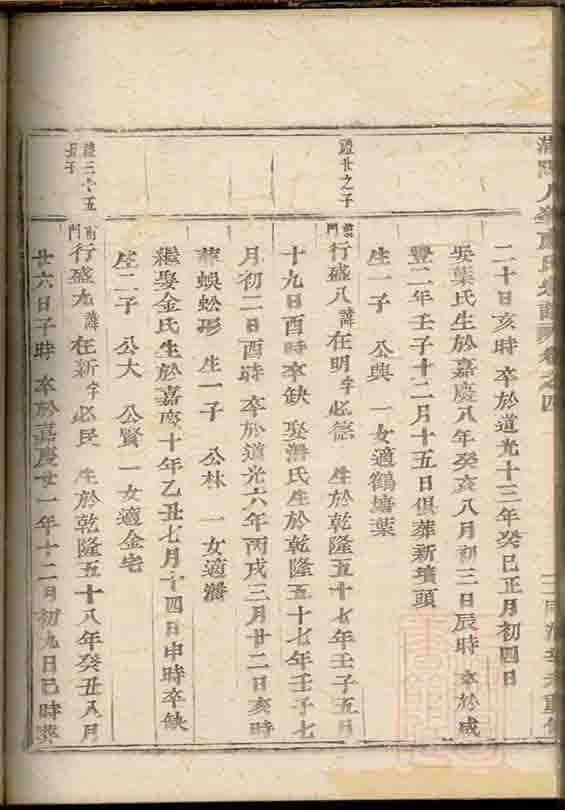 氏宗譜卷之四
二十日亥時 卒於道光十三年癸巳正月初四日
娶葉氏生於嘉慶八年癸亥八月初三日辰時 卒於咸
豐二年壬子十二月十五日俱葬新墳頭
生一子 公興 一女適鶴塘葉
之子
行盛八諱在明字必德 生於乾隆五十七年壬子五月
十九日酉時卒缺 娶潘氏生於乾隆五十七年壬子七
月初二日酉時 卒於道光六年丙戌三月廿二日亥時
葬蜈蚣形 生一子 公林 一女適潘
繼娶金氏生於嘉慶十年乙丑七月十四日申時卒缺
生二子 公大 公賢 一女適金宅
長子
行盛九諱在新字必民 生於乾隆五十八年癸丑八月
廿六日子時 卒於嘉慶廿一年十二月初九日巳時葬